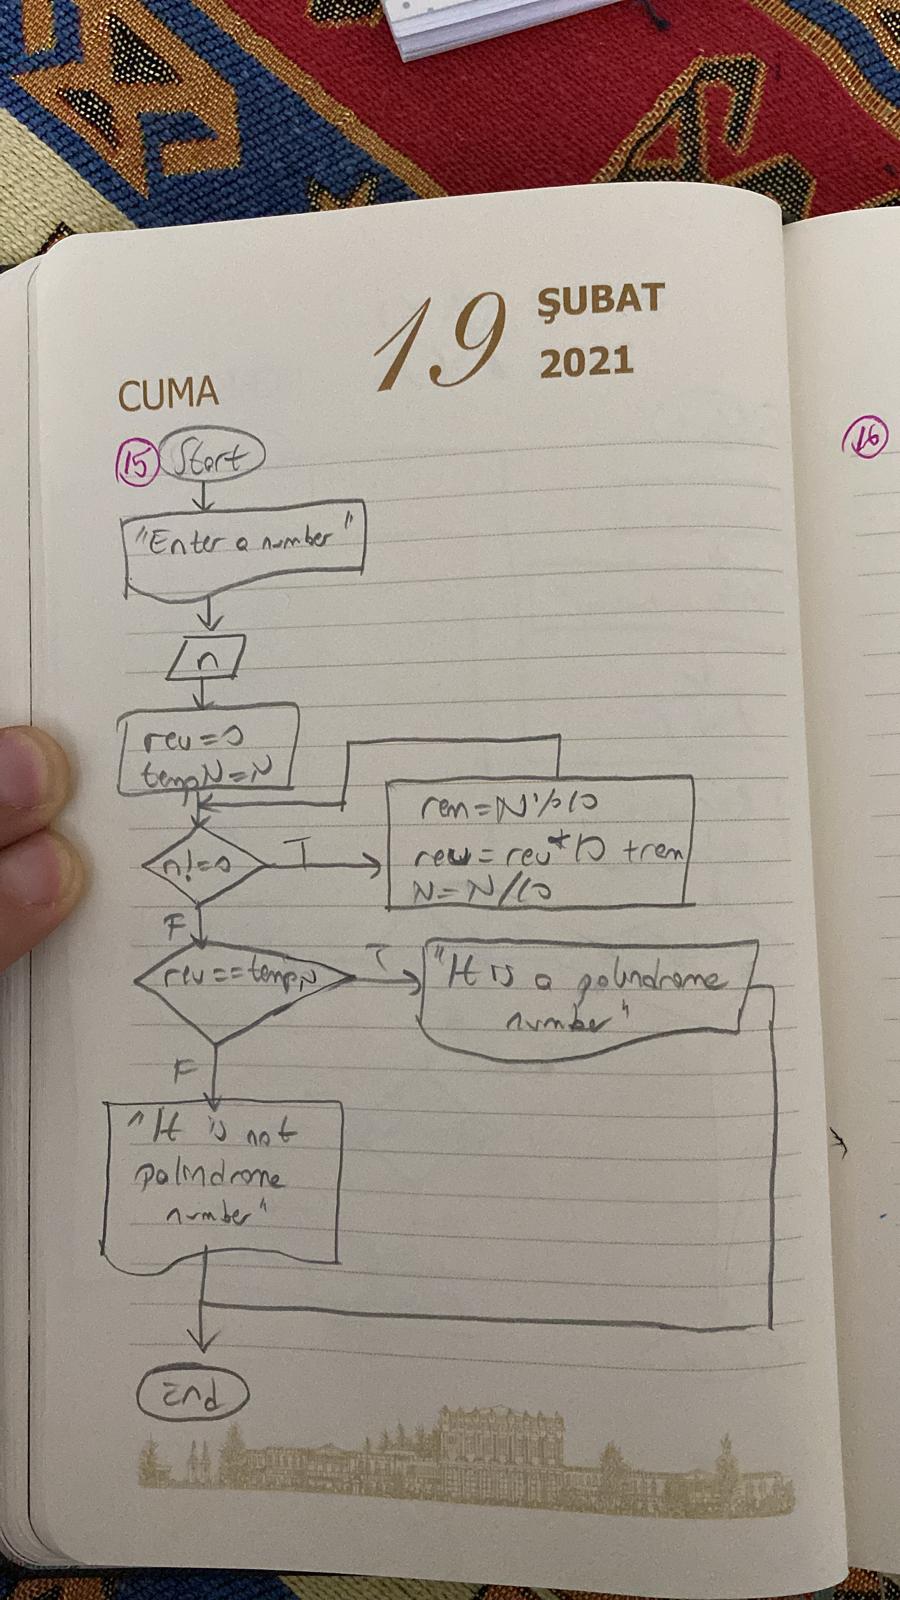 19
ŞUBAT
2021
CUMA
15 Start
16
"Enter a number"
n
rev=0
tempN=N
rem=N%10
rev=rev*10+rem
N=N/10
n!=0
T
F
rev==tempN
T
"It is a polindrome
number"
F
"It is not
polindrome
number"
End